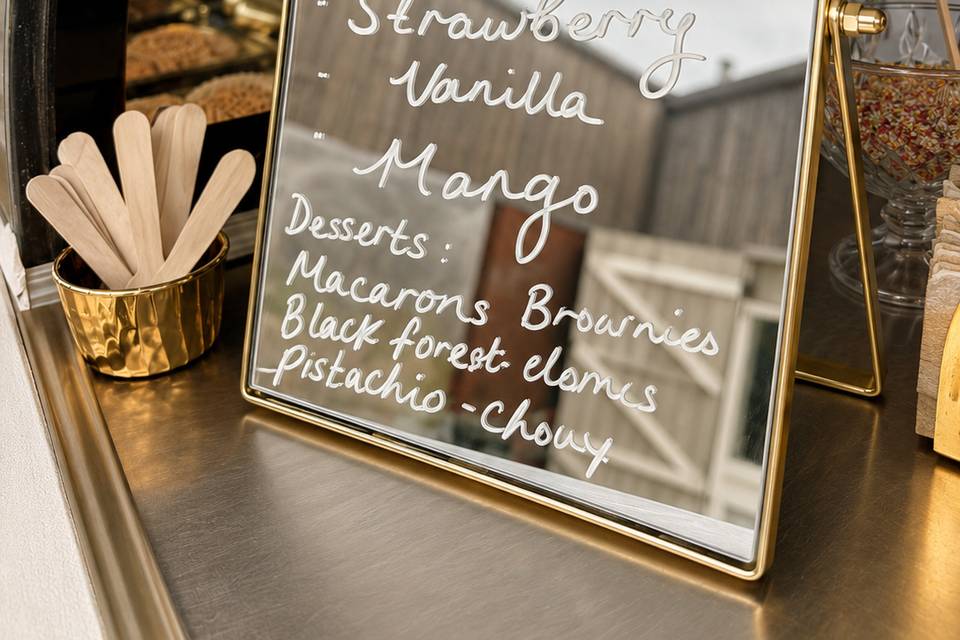 Strawberry
Vanilla
Mango
Desserts:
Macarons Brownies
Black forest
Pistachio - Chouy